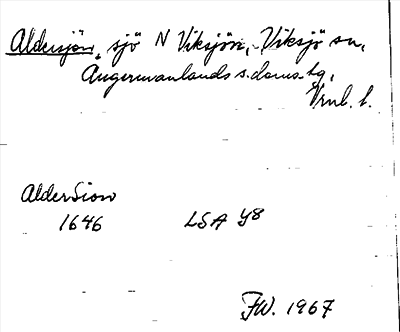 Aldersjön, sjö N Viksjön, Viksjö sn,
Ångermanlands s. doms. tg,
Vrnl. l.
AlderSion
1646 LSA Y8
FW. 1967